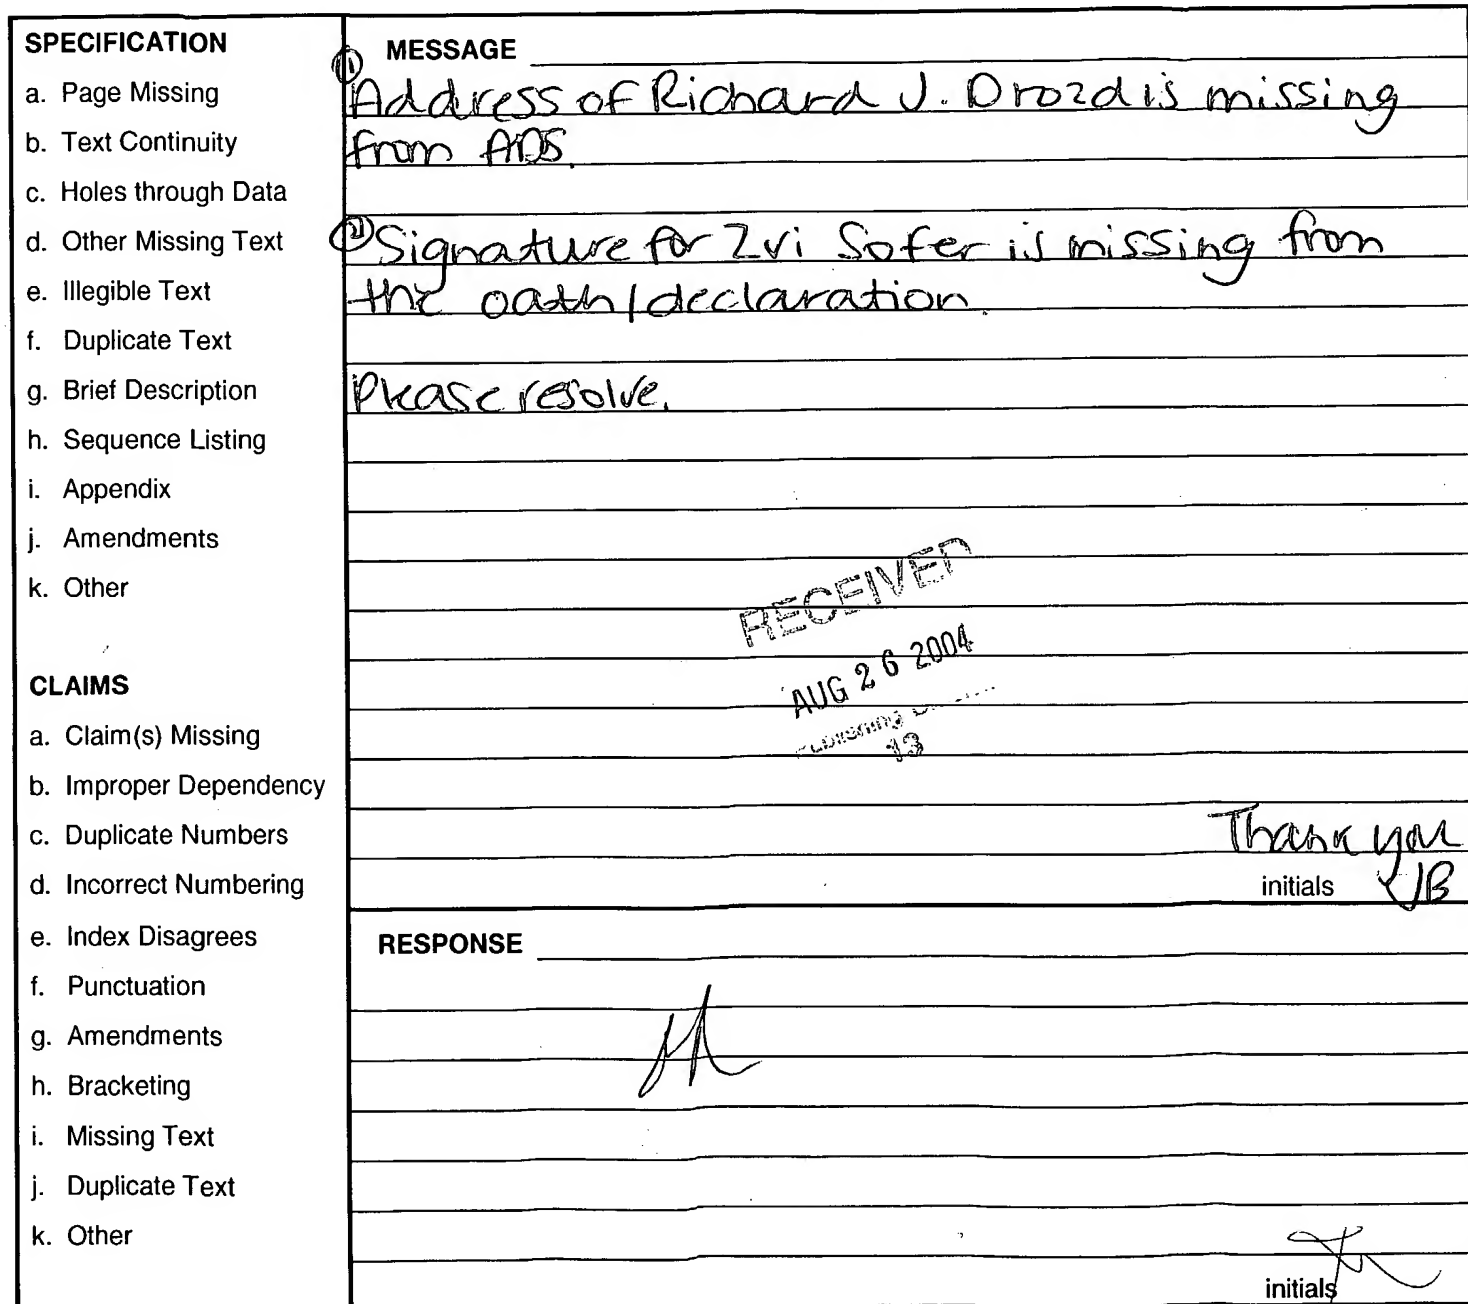 SPECIFICATION
a. Page Missing
b. Text Continuity
c. Holes through Data
d. Other Missing Text
e. Illegible Text
f. Duplicate Text
g. Brief Description
h. Sequence Listing
i. Appendix
j. Amendments
k. Other
CLAIMS
a. Claim(s) Missing
b. Improper Dependency
c. Duplicate Numbers
d. Incorrect Numbering
e. Index Disagrees
f. Punctuation
g. Amendments
h. Bracketing
i. Missing Text
j. Duplicate Text
k. Other
MESSAGE
① Address of Richard J. Drozd is missing
from ADS.
② Signature for Zvi Sofer is missing from
the oath/declaration.
Please resolve.
RECEIVED
AUG 26 2004
Publishing
13
Thank you
initials JB
RESPONSE
initials